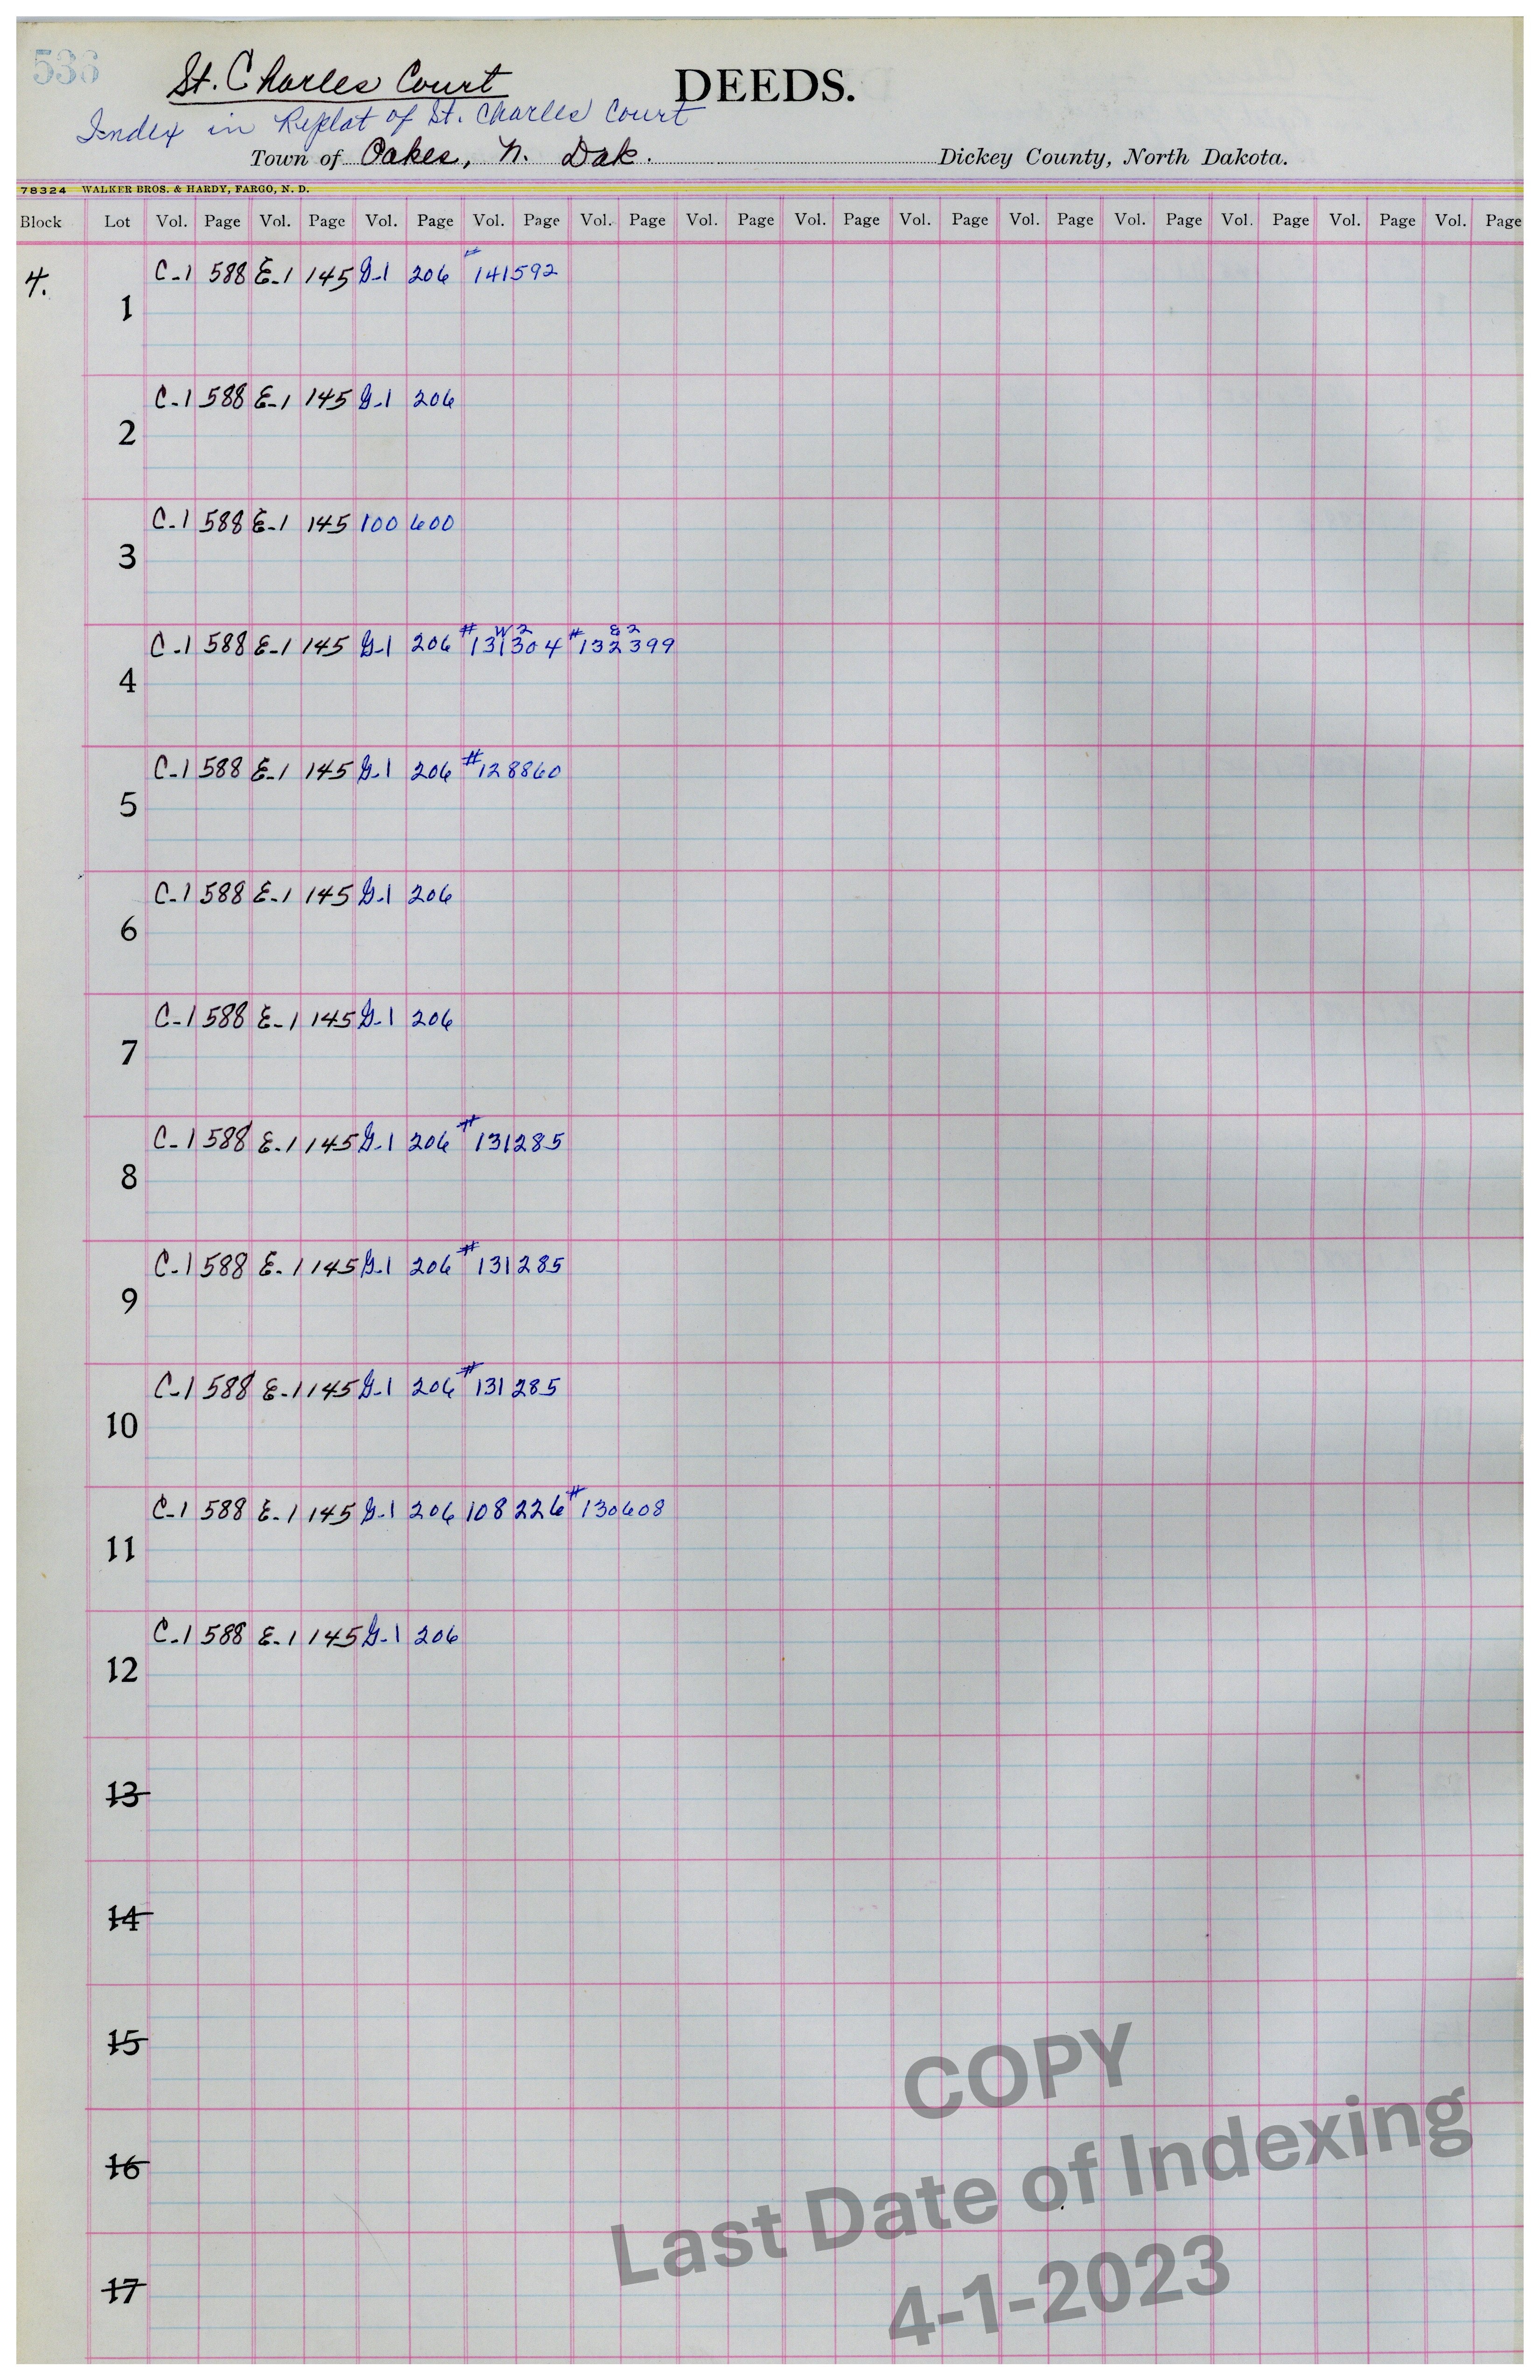 536
St. Charles Court
DEEDS.
Index in Replat of St. Charles Court
Town of Oakes, N. Dak. Dickey County, North Dakota.
78324 WALKER BROS. & HARDY, FARGO, N. D.
Block Lot Vol. Page Vol. Page Vol. Page Vol. Page Vol. Page Vol. Page Vol. Page Vol. Page Vol. Page Vol. Page Vol. Page Vol. Page Vol. Page
4. 1 C-1 588 E-1 145 G-1 206 #141592
2 C-1 588 E-1 145 G-1 206
3 C-1 588 E-1 145 100 600
W2 E2
4 C-1 588 E-1 145 G-1 206 #131304 #132399
5 C-1 588 E-1 145 G-1 206 #128860
6 C-1 588 E-1 145 G-1 206
7 C-1 588 E-1 145 G-1 206
8 C-1 588 E-1 145 G-1 206 #131285
9 C-1 588 E-1 145 G-1 206 #131285
10 C-1 588 E-1 145 G-1 206 #131285
11 C-1 588 E-1 145 G-1 206 108 226 #130608
12 C-1 588 E-1 145 G-1 206
13
14
15
16
17
COPY
Last Date of Indexing
4-1-2023